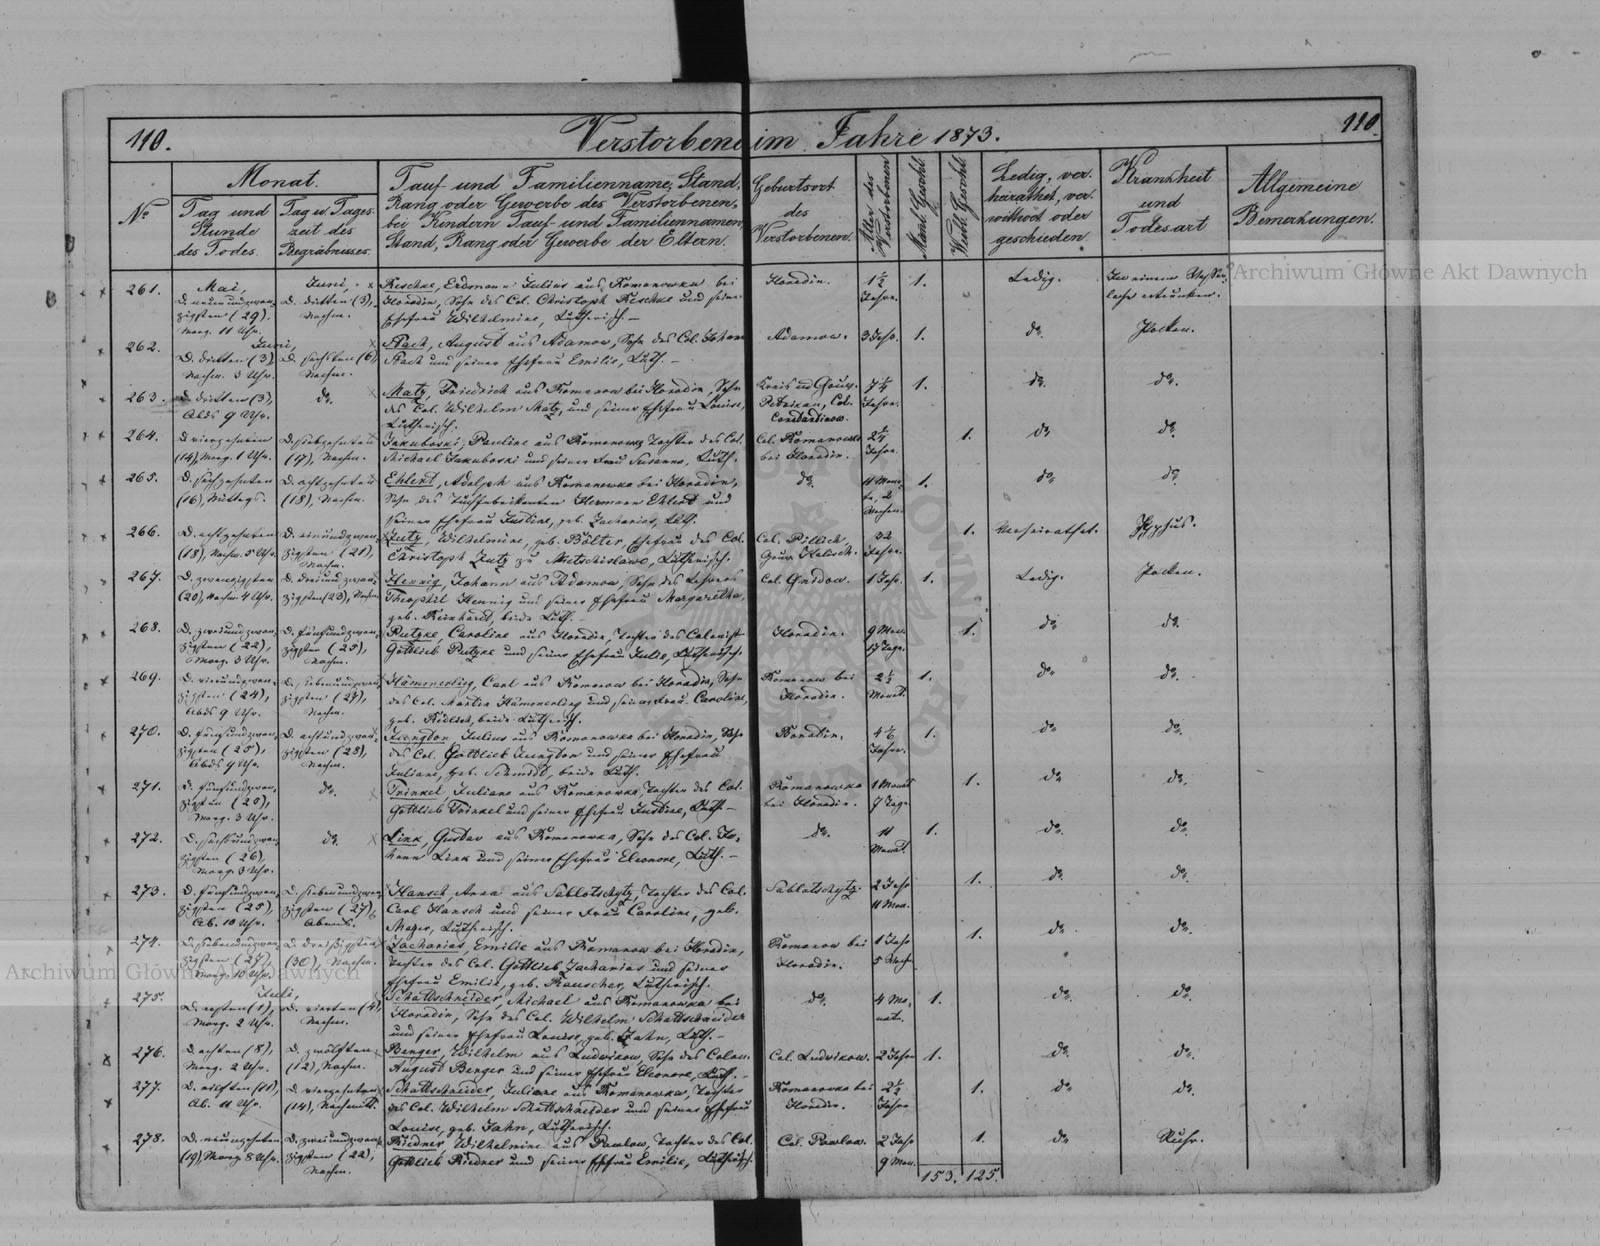 110.
Verstorbene im Jahre 1873.
110.
No
Monat.
Tag und
Stunde
des Todes.
Tag u. Tages-
zeit des
Begräbnisses.
Tauf- und Familienname, Stand,
Rang oder Gewerbe des Verstorbenen,
bei Kindern Tauf- und Familiennamen,
Stand, Rang oder Gewerbe der Eltern.
Geburtsort
des
Verstorbenen.
Alter des
Verstorbenen
Männl. Geschl.
Weibl. Geschl.
Ledig, ver-
heirathet, ver-
wittwet oder
geschieden.
Krankheit
und
Todesart
Allgemeine
Bemerkungen.
261.
Mai,
D. neunundzwan-
zigsten (29),
Morg. 11 Uhr.
Juni,
D. dritten (3),
Nachm.
Reschke, Erdmann Julius aus Romanowka bei
Horadin, Sohn des Col. Christoph Reschke und seiner
Ehefrau Wilhelmine, Lutherisch. –
Horadin.
1 1/2
Jahre.
1.
Ledig.
In einem
ertrunken.
262.
Juni,
D. dritten (3),
Nachm. 3 Uhr.
D. sechsten (6),
Nachm.
August aus Adamow, Sohn des Col. Johann
und seiner Ehefrau Emilie, Luth. –
Adamow.
3 Jahr.
1.
do.
Pocken.
263.
D. dritten (3),
Abds 9 Uhr.
do.
Matz, Friedrich aus Romanow bei Horadin, Sohn
des Col. Wilhelm Matz, und seiner Ehefrau Louise,
Lutherisch.
Kreis und Gouv.
Petrikau, Col.
Constantinow.
7 1/4
Jahre.
1.
do.
do.
264.
D. vierzehnten
(14), Morg. 1 Uhr.
D. siebzehnten
(17), Nachm.
Jakuboski, Pauline aus Romanowka, Tochter des Col.
Michael Jakuboski und seiner Frau Susanna, Luth.
Col. Romanowka
bei Horadin.
2 1/4
Jahr.
1.
do.
do.
265.
D. sechzehnten
(16), Mittags.
D. achtzehnten
(18), Nachm.
Ehlert, Adolph aus Romanowka bei Horadin,
Sohn des Tuchfabrikanten Hermann Ehlert und
seiner Ehefrau Justine, geb. Zacharias, Luth.
do.
11 Mona-
te, 2
Wochen.
1.
do.
do.
266.
D. achtzehnten
(18), Nachm. 5 Uhr.
D. einundzwan-
zigsten (21),
Nachm.
Lutz, Wilhelmine, geb. Bölter, Ehefrau des Col.
Christoph Lutz zu Mstschislaw, Lutherisch.
Col.
Gouv. Kalisch.
22
Jahre.
1.
Verheirathet.
Typhus.
267.
D. zwanzigsten
(20), Nachm. 4 Uhr.
D. dreiundzwan-
zigsten (23), Nachm.
Hennig, Johann aus Adamow, Sohn des Lehrers
Theophil Hennig und seiner Ehefrau Margaretha,
geb. Reinhardt, beide Luth. –
Col. Gnidow.
1 Jahr.
1.
Ledig.
Pocken.
268.
D. zweiundzwan-
zigsten (22),
Morg. 3 Uhr.
D. fünfundzwan-
zigsten (25),
Nachm.
Putzke, Caroline aus Horadin, Tochter des Colonist
Gottlieb Putzke und seiner Ehefrau Julie, Lutherisch.
Horadin.
9 Mon.
17 Tage.
1.
do.
do.
269.
D. vierundzwan-
zigsten (24),
Abds 9 Uhr.
D. siebenundzwan-
zigsten (27),
Nachm.
Hämmerling, Carl aus Romanow bei Horadin, Sohn
des Col. Martin Hämmerling und seiner Frau Caroline,
geb. beide Lutherisch.
Romanow bei
Horadin.
2 1/2
Monat.
1.
do.
do.
270.
D. fünfundzwan-
zigsten (25),
Abds 9 Uhr.
D. achtundzwan-
zigsten (28),
Nachm.
Jungton Julius aus Romanowka bei Horadin, Sohn
des Col. Gottlieb Jungton und seiner Ehefrau
Juliane, geb. Schmidt, beide Luth.
Horadin.
4 1/6
Jahre.
1.
do.
do.
271.
D. fünfundzwan-
zigsten (25),
Morg. 3 Uhr.
do.
Trinkel, Juliane aus Romanowka, Tochter des Col.
Gottlieb Trinkel und seiner Ehefrau Justine, Luth –
Romanowka
bei Horadin.
1 Monat
7 Tage.
1.
do.
do.
272.
D. sechsundzwan-
zigsten (26),
Morg. 3 Uhr.
do.
Link, Gustav aus Romanowka, Sohn des Col. Jo-
hann Link und seiner Ehefrau Eleonore, Luth. –
do.
11
Monat.
1.
do.
do.
273.
D. fünfundzwan-
zigsten (25),
Ab. 10 Uhr.
D. siebenundzwan-
zigsten (27),
Abends.
Hansch, Anna aus Sablotschytz, Tochter des Col.
Carl Hansch und seiner Frau Caroline, geb.
Mayer, Lutherisch.
Sablotschytz.
2 Jahr
11 Mon.
1.
do.
do.
274.
D. siebenundzwan-
zigsten (27),
Morg. 10 Uhr.
D. dreißigsten
(30), Nachm.
Zacharias, Emilie aus Romanow bei Horadin,
Tochter des Col. Gottlieb Zacharias und seiner
Ehefrau Emilie, geb. Rauscher, Lutherisch.
Romanow bei
Horadin.
1 Jahr
5 Woch.
1.
do.
do.
275.
Juli,
D. ersten (1),
Morg. 2 Uhr.
D. vierten (4),
Nachm.
Schattschneider, Michael aus Romanowka bei
Horadin, Sohn des Col. Wilhelm Schattschneider
und seiner Ehefrau Louise, geb. Jahn, Luth. –
do.
4 Mo-
nate.
1.
do.
do.
276.
D. achten (8),
Morg. 2 Uhr.
D. zwölften
(12), Nachm.
Berger, Wilhelm aus Ludwikow, Sohn des Colon.
August Berger und seiner Ehefrau Eleonore, Luth. –
Col. Ludwikow.
2 Jahre
1.
do.
do.
277.
D. eilften (11),
Ab. 11 Uhr.
D. vierzehnten
(14), Nachmitt.
Schattschneider, Juliane aus Romanowka, Tochter
des Col. Wilhelm Schattschneider und seiner Ehefrau
Louise, geb. Jahn, Lutherisch.
Romanowka bei
Horadin.
2 1/2
Jahre
1.
do.
do.
278.
D. neunzehnten
(19), Morg. 8 Uhr.
D. zweiundzwan-
zigsten (22),
Nachm.
Riedner Wilhelmine aus Pawlow, Tochter des Col.
Gottlieb Riedner und seiner Ehefrau Emilie, Lutherisch.
Col. Pawlow.
2 Jahr
9 Mon.
1.
do.
Ruhr.
153. 125.
Archiwum Główne Akt Dawnych
Archiwum Główne Akt Dawnych